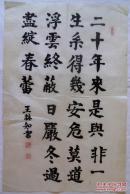 二十年来是與非一
生系得幾安危莫道
浮雲終蔽日嚴冬過
盡綻春蕾 王 書